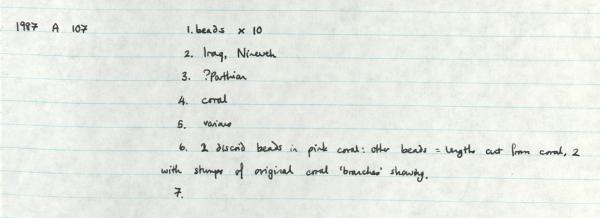 1987 A 107 1. beads x 10
2. Iraq, Nineveh
3. ?Parthian
4. coral
5. various
6. 2 discoid beads in pink coral: other beads = lengths cut from coral, 2
with stumps of original coral 'branches' showing.
7.